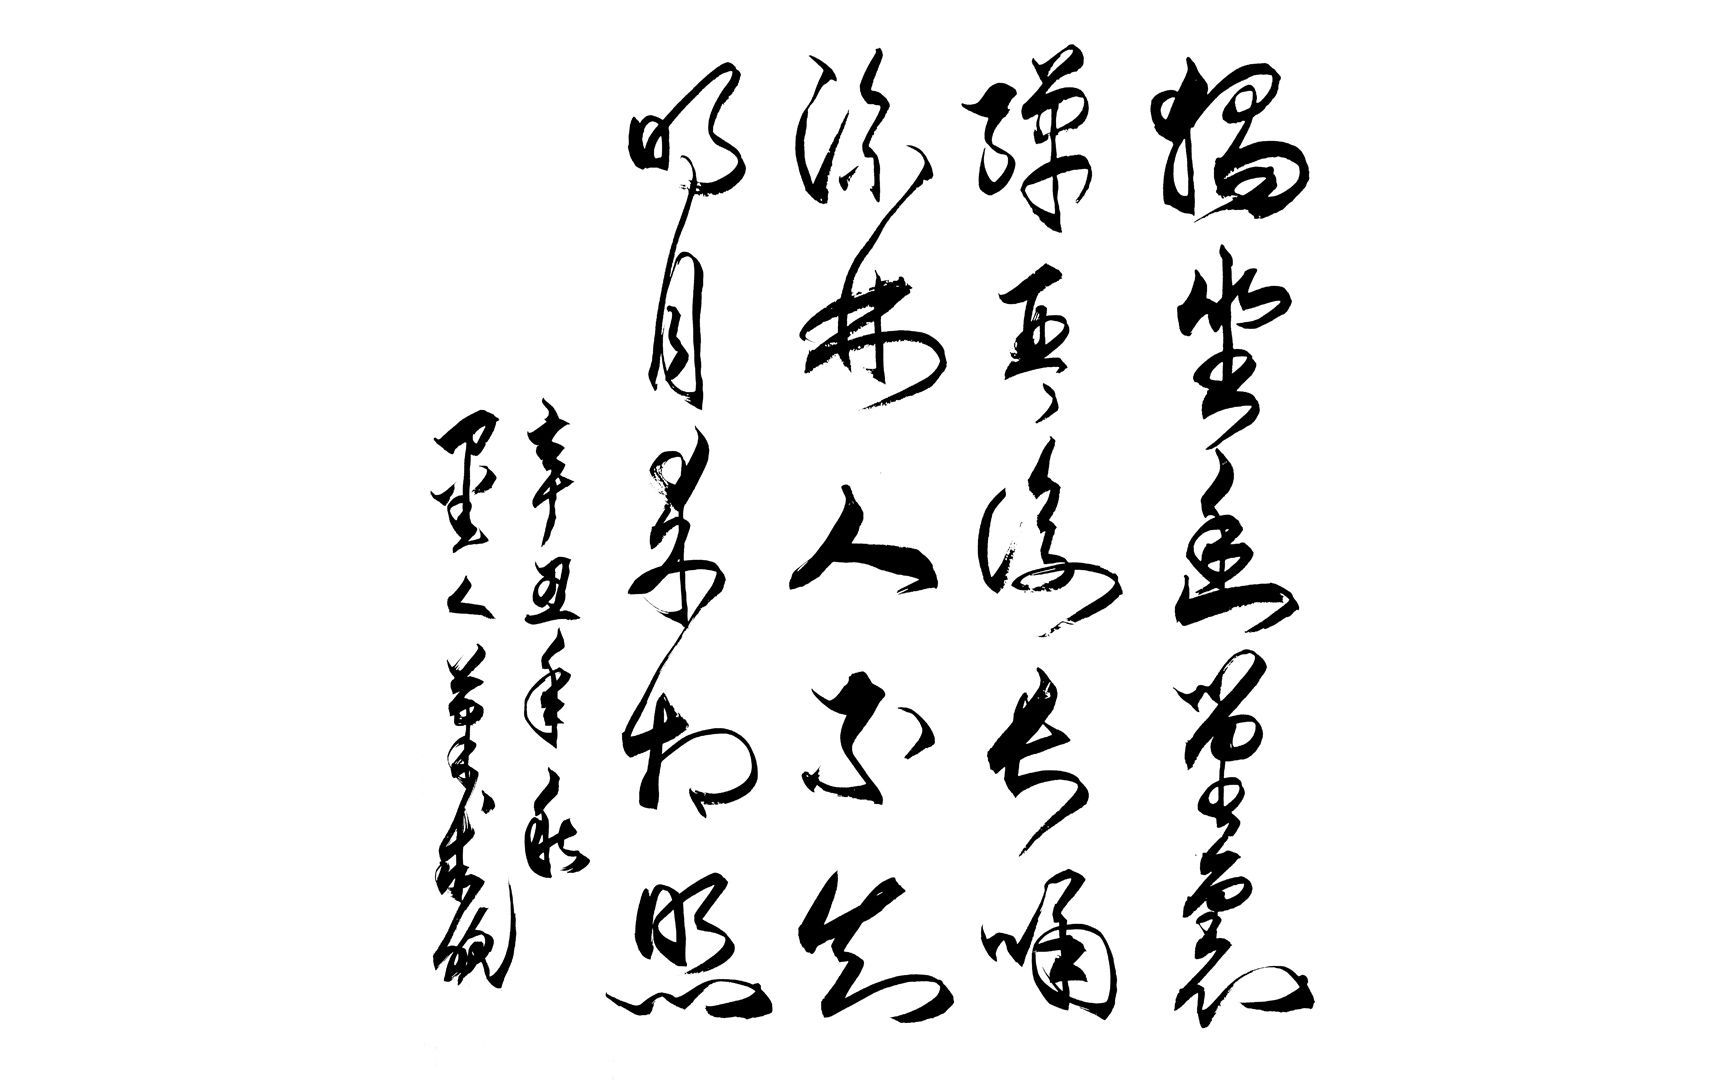 獨坐幽篁裏
彈琴復長嘯
深林人不知
明月来相照
辛丑年秋
墨人